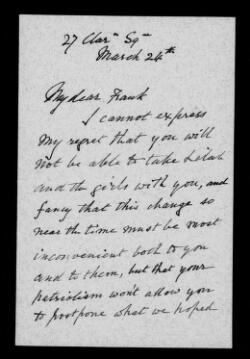 27 Clarⁿ Sqᵉ
March 24ᵗʰ
My dear Frank
I cannot express
my regret that you will
not be able to take Lilah
and the girls with you, and
fancy that this change so
near the time must be most
inconvenient both to you
and to them, but that your
patriotism won't allow you
to postpone what we hoped